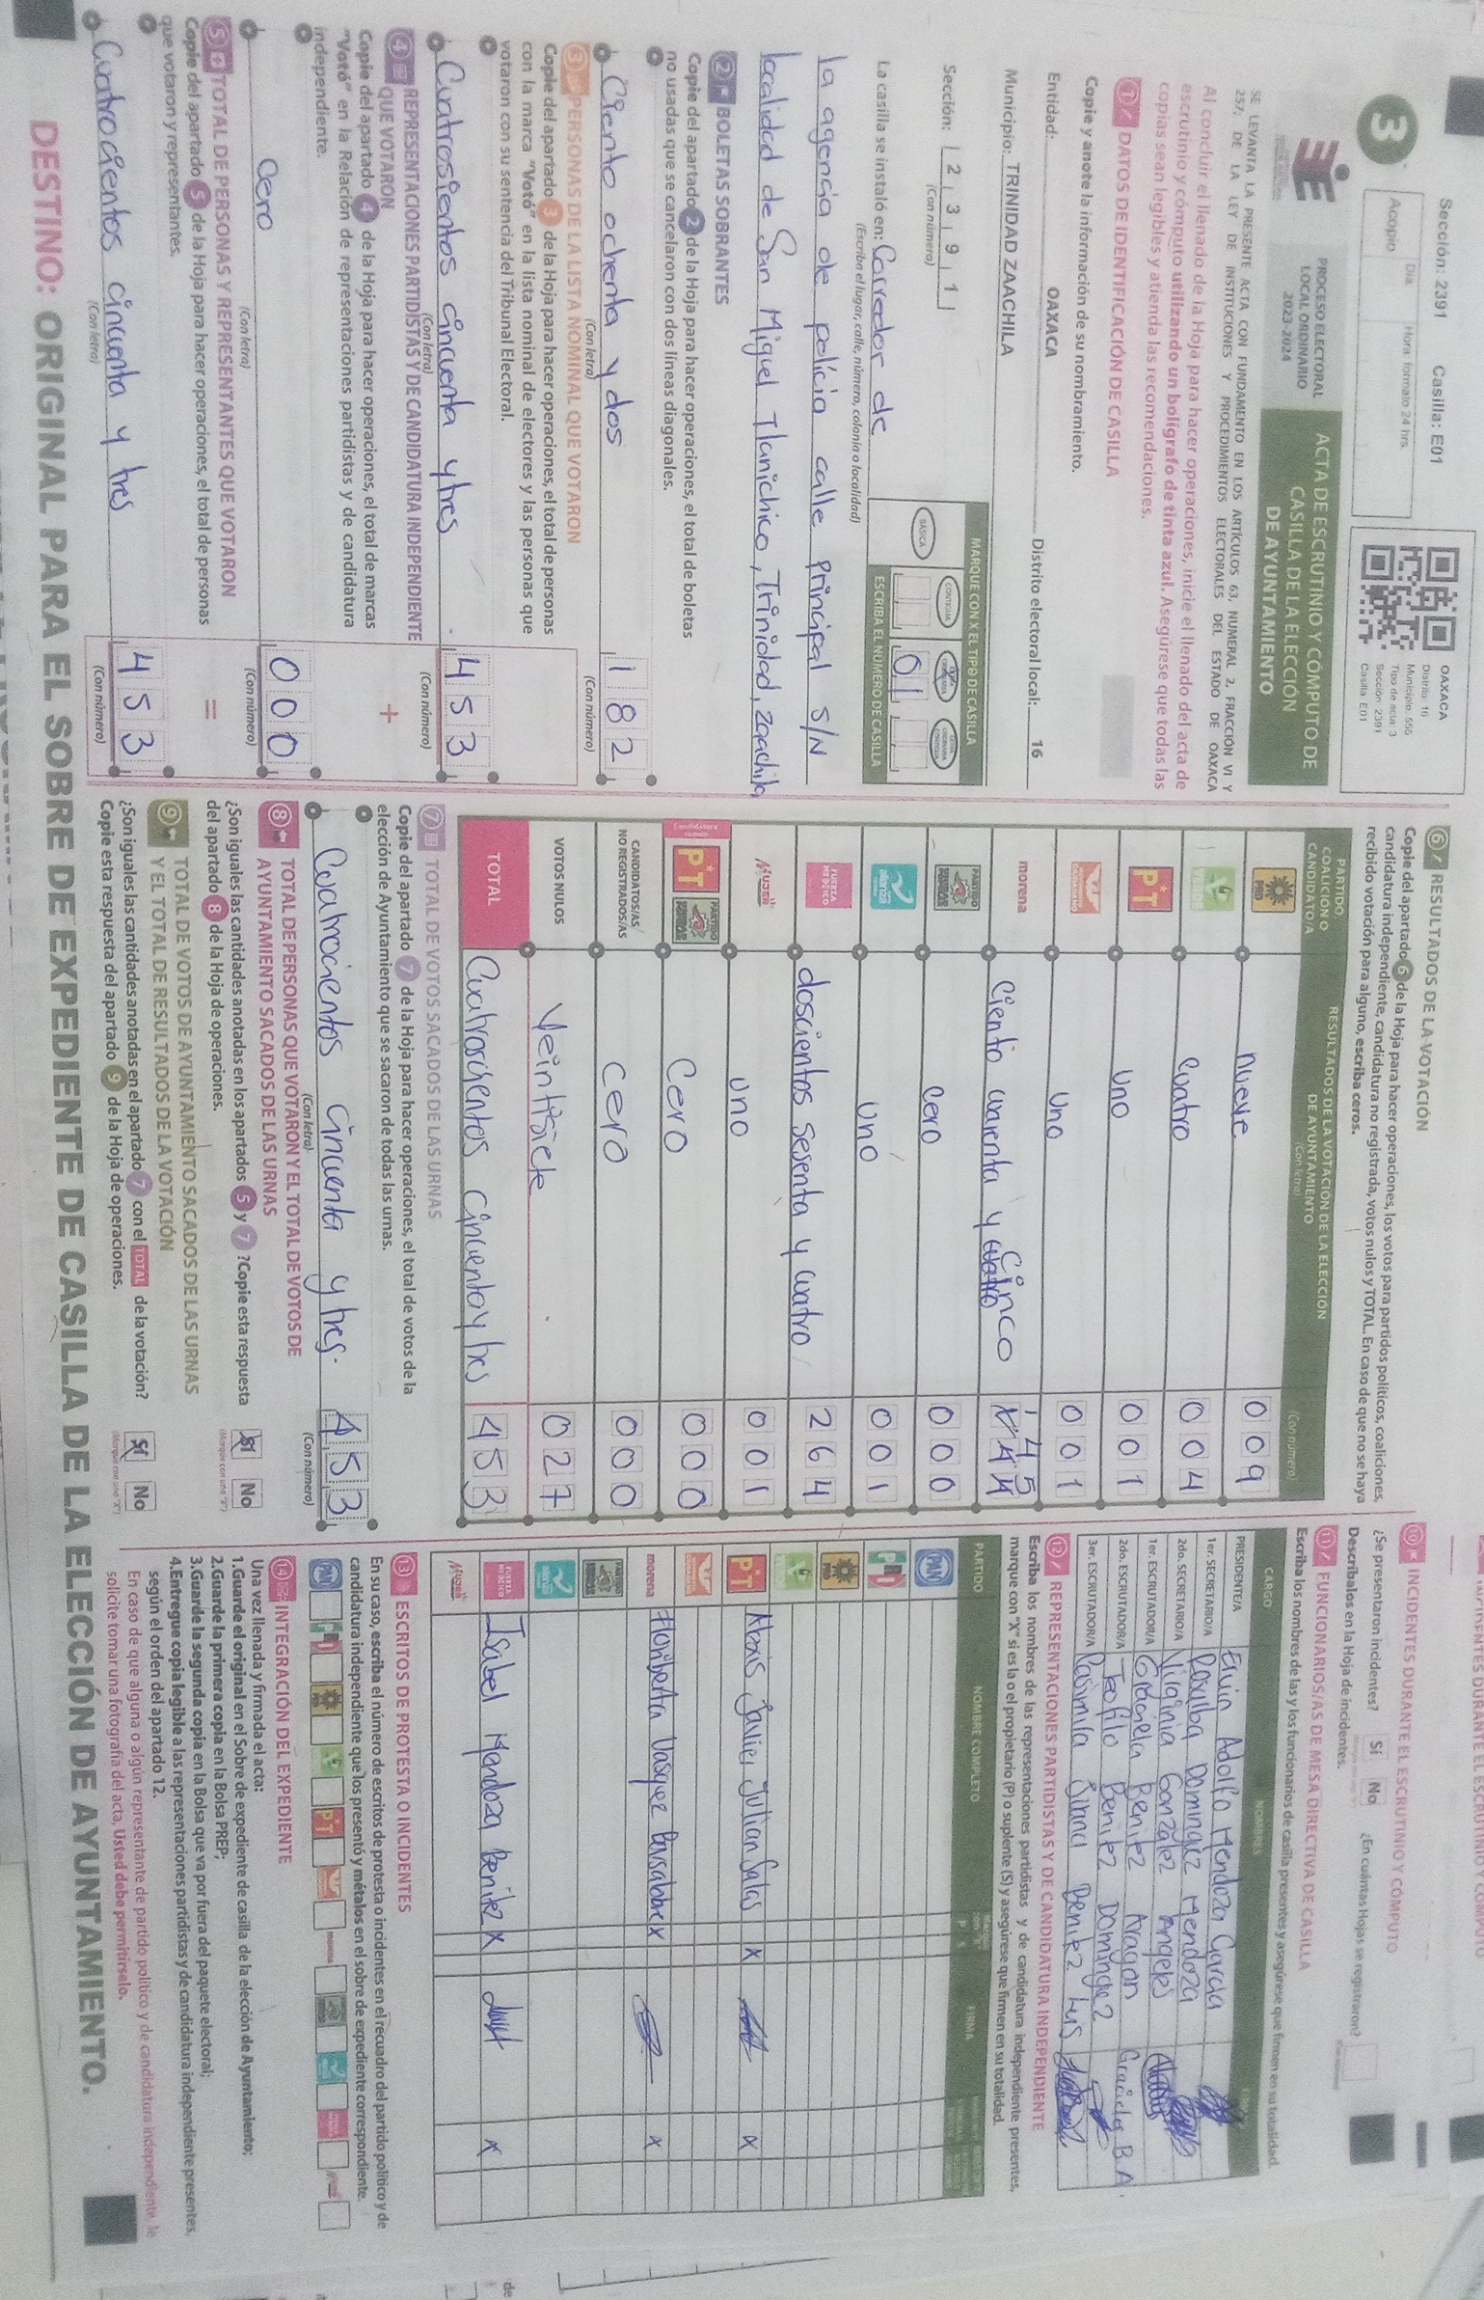 Sección: 2391 Casilla: E01
3
Acopio
Día
Hora: formato 24 hrs.
OAXACA
Distrito: 16
Municipio: 556
Tipo de acta: 3
Sección: 2391
Casilla: E01
PROCESO ELECTORAL
LOCAL ORDINARIO
2023-2024
ACTA DE ESCRUTINIO Y CÓMPUTO DE
CASILLA DE LA ELECCIÓN
DE AYUNTAMIENTO
SE LEVANTA LA PRESENTE ACTA CON FUNDAMENTO EN LOS ARTÍCULOS 63, NUMERAL 2, FRACCIÓN VI Y
257, DE LA LEY DE INSTITUCIONES Y PROCEDIMIENTOS ELECTORALES DEL ESTADO DE OAXACA
Al concluir el llenado de la Hoja para hacer operaciones, inicie el llenado del acta de
escrutinio y cómputo utilizando un bolígrafo de tinta azul. Asegúrese que todas las
copias sean legibles y atienda las recomendaciones.
1 DATOS DE IDENTIFICACIÓN DE CASILLA
Copie y anote la información de su nombramiento.
Entidad: OAXACA Distrito electoral local: 16
Municipio: TRINIDAD ZAACHILA
Sección: 2 3 9 1
(Con número)
MARQUE CON X EL TIPO DE CASILLA
BÁSICA
CONTIGUA
ESCRIBA EL NÚMERO DE CASILLA
01
La casilla se instaló en: Corredor de
(Escriba el lugar, calle, número, colonia o localidad)
la agencia de policia calle Principal S/N
localidad de San Miguel Tlanichico, Trinidad, Zaachila
2 BOLETAS SOBRANTES
Copie del apartado 2 de la Hoja para hacer operaciones, el total de boletas
no usadas que se cancelaron con dos líneas diagonales.
Ciento ochenta y dos 182
(Con letra) (Con número)
3 PERSONAS DE LA LISTA NOMINAL QUE VOTARON
Copie del apartado 3 de la Hoja para hacer operaciones, el total de personas
con la marca "Votó" en la lista nominal de electores y las personas que
votaron con su sentencia del Tribunal Electoral.
Cuatrosientos cincuenta y tres 453
(Con letra) (Con número)
4 REPRESENTACIONES PARTIDISTAS Y DE CANDIDATURA INDEPENDIENTE
QUE VOTARON +
Copie del apartado 4 de la Hoja para hacer operaciones, el total de marcas
"Votó" en la Relación de representaciones partidistas y de candidatura
independiente.
Cero 000
(Con letra) (Con número)
5 TOTAL DE PERSONAS Y REPRESENTANTES QUE VOTARON =
Copie del apartado 5 de la Hoja para hacer operaciones, el total de personas
que votaron y representantes.
Cuatrocientos cincuenta y tres 453
(Con letra) (Con número)
6 RESULTADOS DE LA VOTACIÓN
Copie del apartado 6 de la Hoja para hacer operaciones, los votos para partidos políticos, coaliciones,
candidatura independiente, candidatura no registrada, votos nulos y TOTAL. En caso de que no se haya
recibido votación para alguno, escriba ceros.
PARTIDO,
COALICIÓN O
CANDIDATO/A
RESULTADOS DE LA VOTACIÓN DE LA ELECCIÓN
DE AYUNTAMIENTO
(Con letra) (Con número)
PRD nueve 009
VERDE Cuatro 004
PT Uno 001
Uno 001
morena Ciento cuarenta y cuatro cinco 144 145
Cero 000
Uno 001
FUERZA MÉXICO doscientos sesenta y cuatro 264
Mujer uno 001
PT Cero 000
CANDIDATOS/AS
NO REGISTRADOS/AS cero 000
VOTOS NULOS Veintisiete 027
TOTAL Cuatroscientos cincuenta y tres 453
7 TOTAL DE VOTOS SACADOS DE LAS URNAS
Copie del apartado 7 de la Hoja para hacer operaciones, el total de votos de la
elección de Ayuntamiento que se sacaron de todas las urnas.
Cuatrocientos cincuenta y tres. 453
(Con letra) (Con número)
8 TOTAL DE PERSONAS QUE VOTARON Y EL TOTAL DE VOTOS DE
AYUNTAMIENTO SACADOS DE LAS URNAS
¿Son iguales las cantidades anotadas en los apartados 5 y 7? Copie esta respuesta
del apartado 8 de la Hoja de operaciones.
Sí No
9 TOTAL DE VOTOS DE AYUNTAMIENTO SACADOS DE LAS URNAS
Y EL TOTAL DE RESULTADOS DE LA VOTACIÓN
¿Son iguales las cantidades anotadas en el apartado 7 con el TOTAL de la votación?
Copie esta respuesta del apartado 9 de la Hoja de operaciones.
Sí No
10 INCIDENTES DURANTE EL ESCRUTINIO Y CÓMPUTO
¿Se presentaron incidentes? Sí No ¿En cuántas Hojas se registraron?
Descríbalos en la Hoja de incidentes.
11 FUNCIONARIOS/AS DE MESA DIRECTIVA DE CASILLA
Escriba los nombres de las y los funcionarios de casilla presentes y asegúrese que firmen en su totalidad.
CARGO NOMBRES
PRESIDENTE/A Elvin Adolfo Mendoza Garcia
1er. SECRETARIO/A Rosalba Dominguez Mendoza
2do. SECRETARIO/A Virginia Gonzalez Angeles
1er. ESCRUTADOR/A Graciela Benitez Aragon Graciela B.A.
2do. ESCRUTADOR/A Teofilo Benitez Dominguez
3er. ESCRUTADOR/A Benitez Luis
12 REPRESENTACIONES PARTIDISTAS Y DE CANDIDATURA INDEPENDIENTE
Escriba los nombres de las representaciones partidistas y de candidatura independiente presentes,
marque con "X" si es la o el propietario (P) o suplente (S) y asegúrese que firmen en su totalidad.
PARTIDO NOMBRE COMPLETO FIRMA
PAN
PRI
PRD
VERDE
PT Alexis Javier Julian Salas X X
morena Floriberta Vasquez X X
FUERZA MÉXICO Isabel Mendoza Benitez X X
Mujer
13 ESCRITOS DE PROTESTA O INCIDENTES
En su caso, escriba el número de escritos de protesta o incidentes en el recuadro del partido político y de
candidatura independiente que los presentó y métalos en el sobre de expediente correspondiente.
14 INTEGRACIÓN DEL EXPEDIENTE
Una vez llenada y firmada el acta:
1.Guarde el original en el Sobre de expediente de casilla de la elección de Ayuntamiento;
2.Guarde la primera copia en la Bolsa PREP;
3.Guarde la segunda copia en la Bolsa que va por fuera del paquete electoral;
4.Entregue copia legible a las representaciones partidistas y de candidatura independiente presentes,
según el orden del apartado 12.
En caso de que alguna o algún representante de partido político y de candidatura independiente, le
solicite tomar una fotografía del acta, Usted debe permitírselo.
DESTINO: ORIGINAL PARA EL SOBRE DE EXPEDIENTE DE CASILLA DE LA ELECCIÓN DE AYUNTAMIENTO.